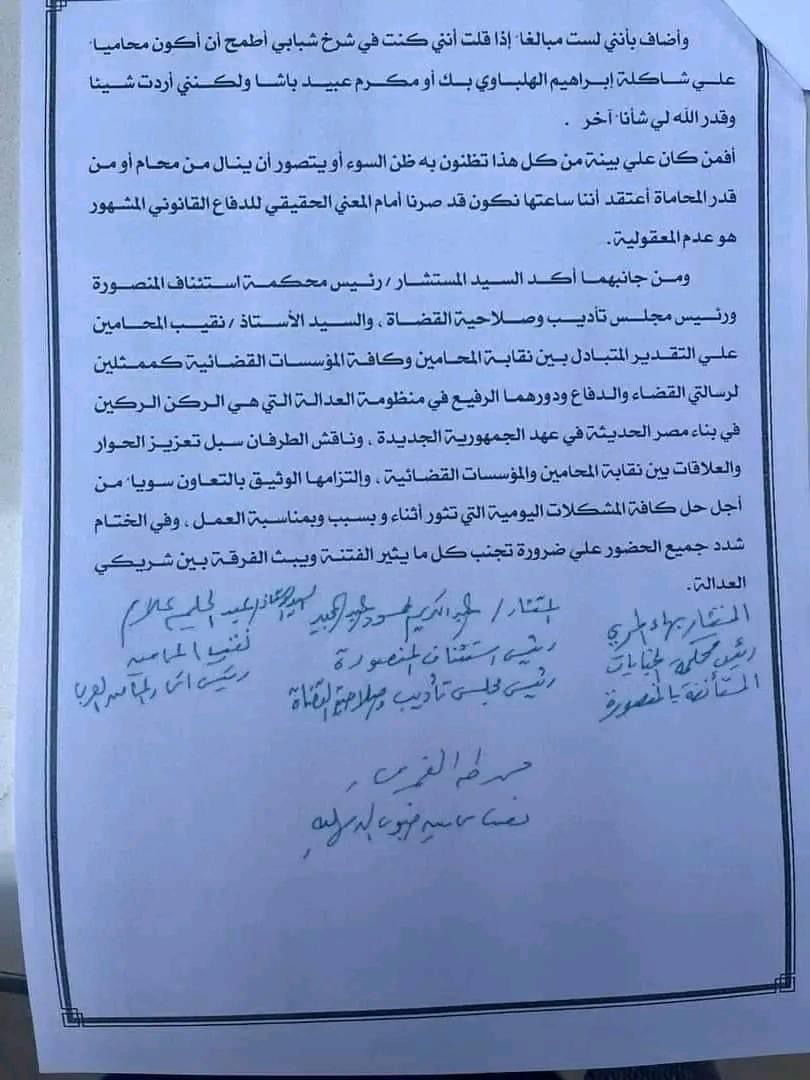 وأضاف بأنني لست مبالغا ً إذا قلت أنني كنت في شرخ شبابي أطمح أن أكون محاميا ً
علي شاكلة إبراهيم الهلباوي بك أو مكرم عبيد باشا ولكنني أردت شيئا
وقدر الله لي شأنا ً آخر .
أفمن كان علي بينة من كل هذا تظنون به ظن السوء أو يتصور أن ينال من محام أو من
قدر المحاماة أعتقد أننا ساعتها نكون قد صرنا أمام المعني الحقيقي للدفاع القانوني المشهور
هو عدم المعقولية .
ومن جانبهما أكد السيد المستشار / رئيس محكمة استئناف المنصورة
ورئيس مجلس تأديب وصلاحية القضاة ، والسيد الأستاذ / نقيب المحامين
علي التقدير المتبادل بين نقابة المحامين وكافة المؤسسات القضائية كممثلين
لرسالتي القضاء والدفاع ودورهما الرفيع في منظومة العدالة التي هي الركن الركين
في بناء مصر الحديثة في عهد الجمهورية الجديدة ، وناقش الطرفان سبل تعزيز الحوار
والعلاقات بين نقابة المحامين والمؤسسات القضائية ، والتزامها الوثيق بالتعاون سويا ً من
أجل حل كافة المشكلات اليومية التي تثور أثناء و بسبب وبمناسبة العمل ، وفي الختام
شدد جميع الحضور علي ضرورة تجنب كل ما يثير الفتنة ويبث الفرقة بين شريكي
العدالة .
المستشار بهاء المري
رئيس محكمة الجنايات
المستأنفة بالمنصورة
المستشار / عبد الكريم محمود عبد المجيد
رئيس استئناف المنصورة
رئيس مجلس تأديب وصلاحية القضاة
السيد الأستاذ / عبد الحليم علام
نقيب المحامين
رئيس اتحاد المحامين العرب